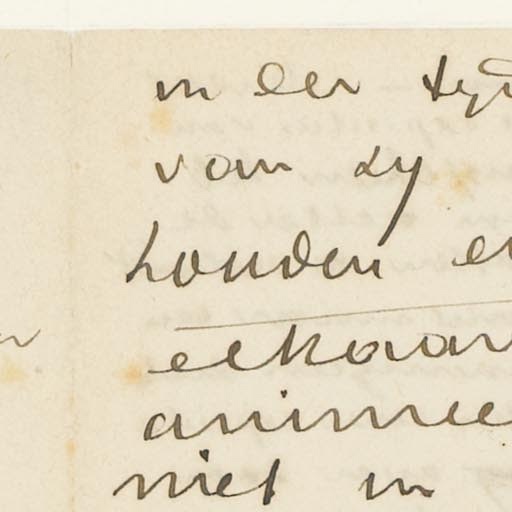 in een tyd
van zy
houden en
elkaar
animee
niet in